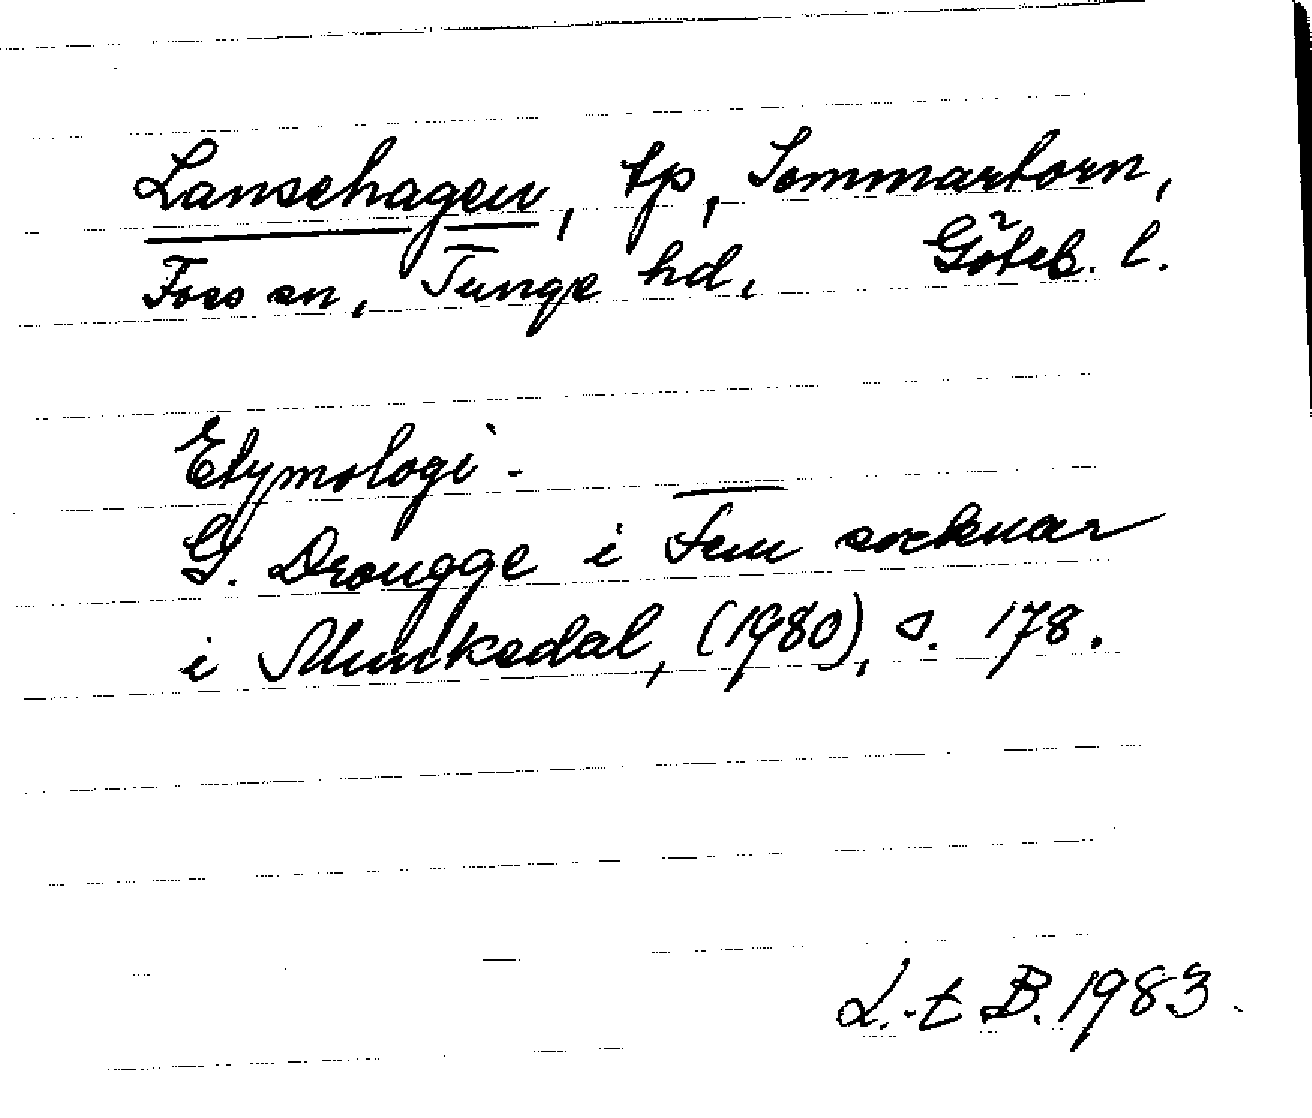 Lansehagen, tp, Sommartorn,
Foss sn, Tunge hd, Göteb. l.
Etymologi.
G. Drougge i Fem socknar
i Munkedal, (1980), s. 178.
L.-t B. 1983.